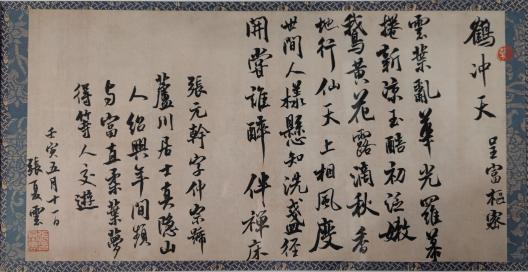 鶴冲天 呈富樞密
雲葉亂華光羅幕
捲新凉玉醅初泛嫩
鵝黃花露滴秋香
地行仙天上相風度
世間人樣懸知洗盞徑
開嘗誰醉伴禪床
張元幹字仲宗號
蘆川居士真隱山
人紹興年間頻
与富直柔葉夢
得等人交遊
壬寅五月十日
張夏雲